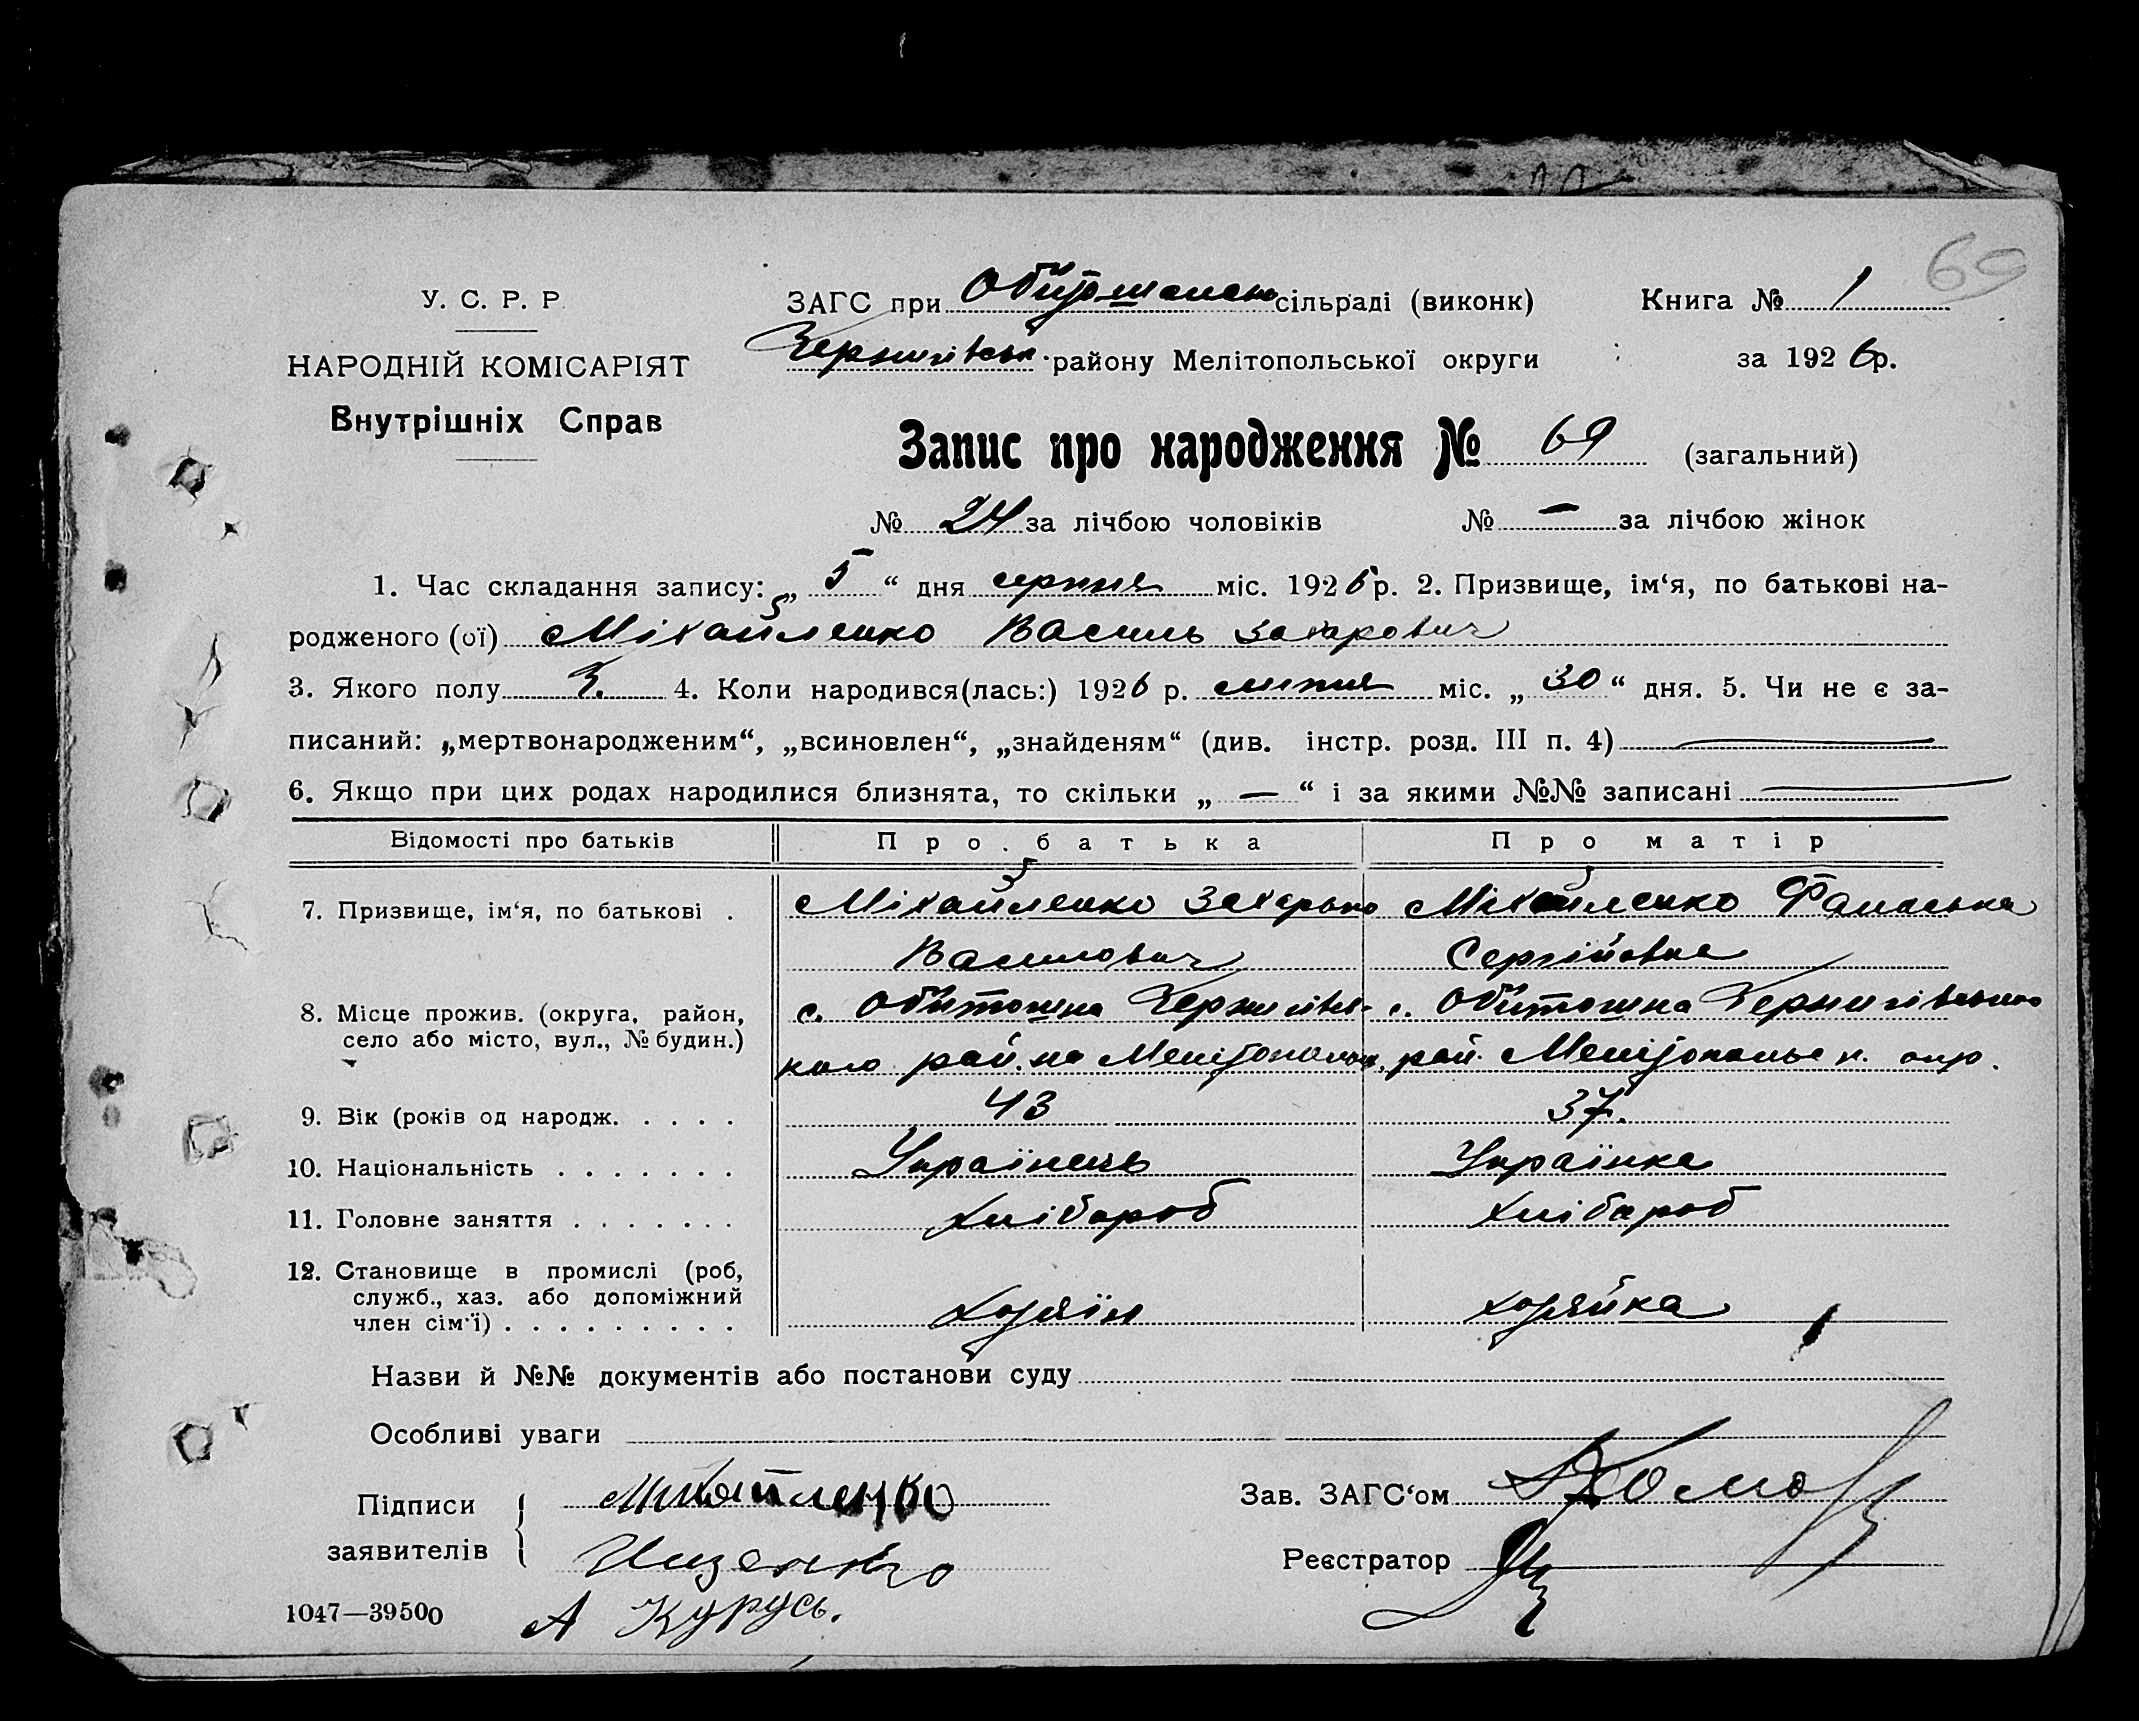 69
У. С. Р. Р.
НАРОДНІЙ КОМІСАРІЯТ
Внутрішніх Справ
ЗАГС при Обитошансь сільраді (виконк) Книга № 1
Чернигівськ. району Мелітопольської округи за 1926р.
Запис про народження № 69 (загальний)
№ 24 за лічбою чоловіків № — за лічбою жінок
1. Час складання запису: „ 5 “ дня серпня міс. 1926р. 2. Призвище, ім‘я, по батькові на-
родженого (ої) Міхайленко Василь Захарович
3. Якого полу Ч. 4. Коли народився(лась:) 1926 р. липня міс. „ 30 “ дня. 5. Чи не є за-
писаний: „мертвонародженим“, „всиновлен“, „знайденям“ (див. інстр. розд. III п. 4) —
6. Якщо при цих родах народилися близнята, то скільки „ — “ і за якими №№ записані —
Відомості про батьків Про батька Про матір
7. Призвище, ім‘я, по батькові . Міхайленко Захарько Міхайленко Фанаська
Василович Сергійовна
8. Місце прожив. (округа, район, с. Обитошна Чернигівсь- с. Обитошна Чернигівського
село або місто, вул., № будин.) кого рай. на Мелітопольщ. рай. Мелітопольськ. окр.
9. Вік (років од народж. . . . . 43 37.
10. Національність . . . . . . . Українець Українка
11. Головне заняття . . . . . . . хлібороб хлібароб
12. Становище в промислі (роб,
служб., хаз. або допоміжний
член сім'ї) . . . . . . . . . хозяїн хозяйка
Назви й №№ документів або постанови суду
Особливі уваги
Підписи заявителів { Михайленко Зав. ЗАГС‘ом
Ищенко Реєстратор
1047—39500 А Курусь.